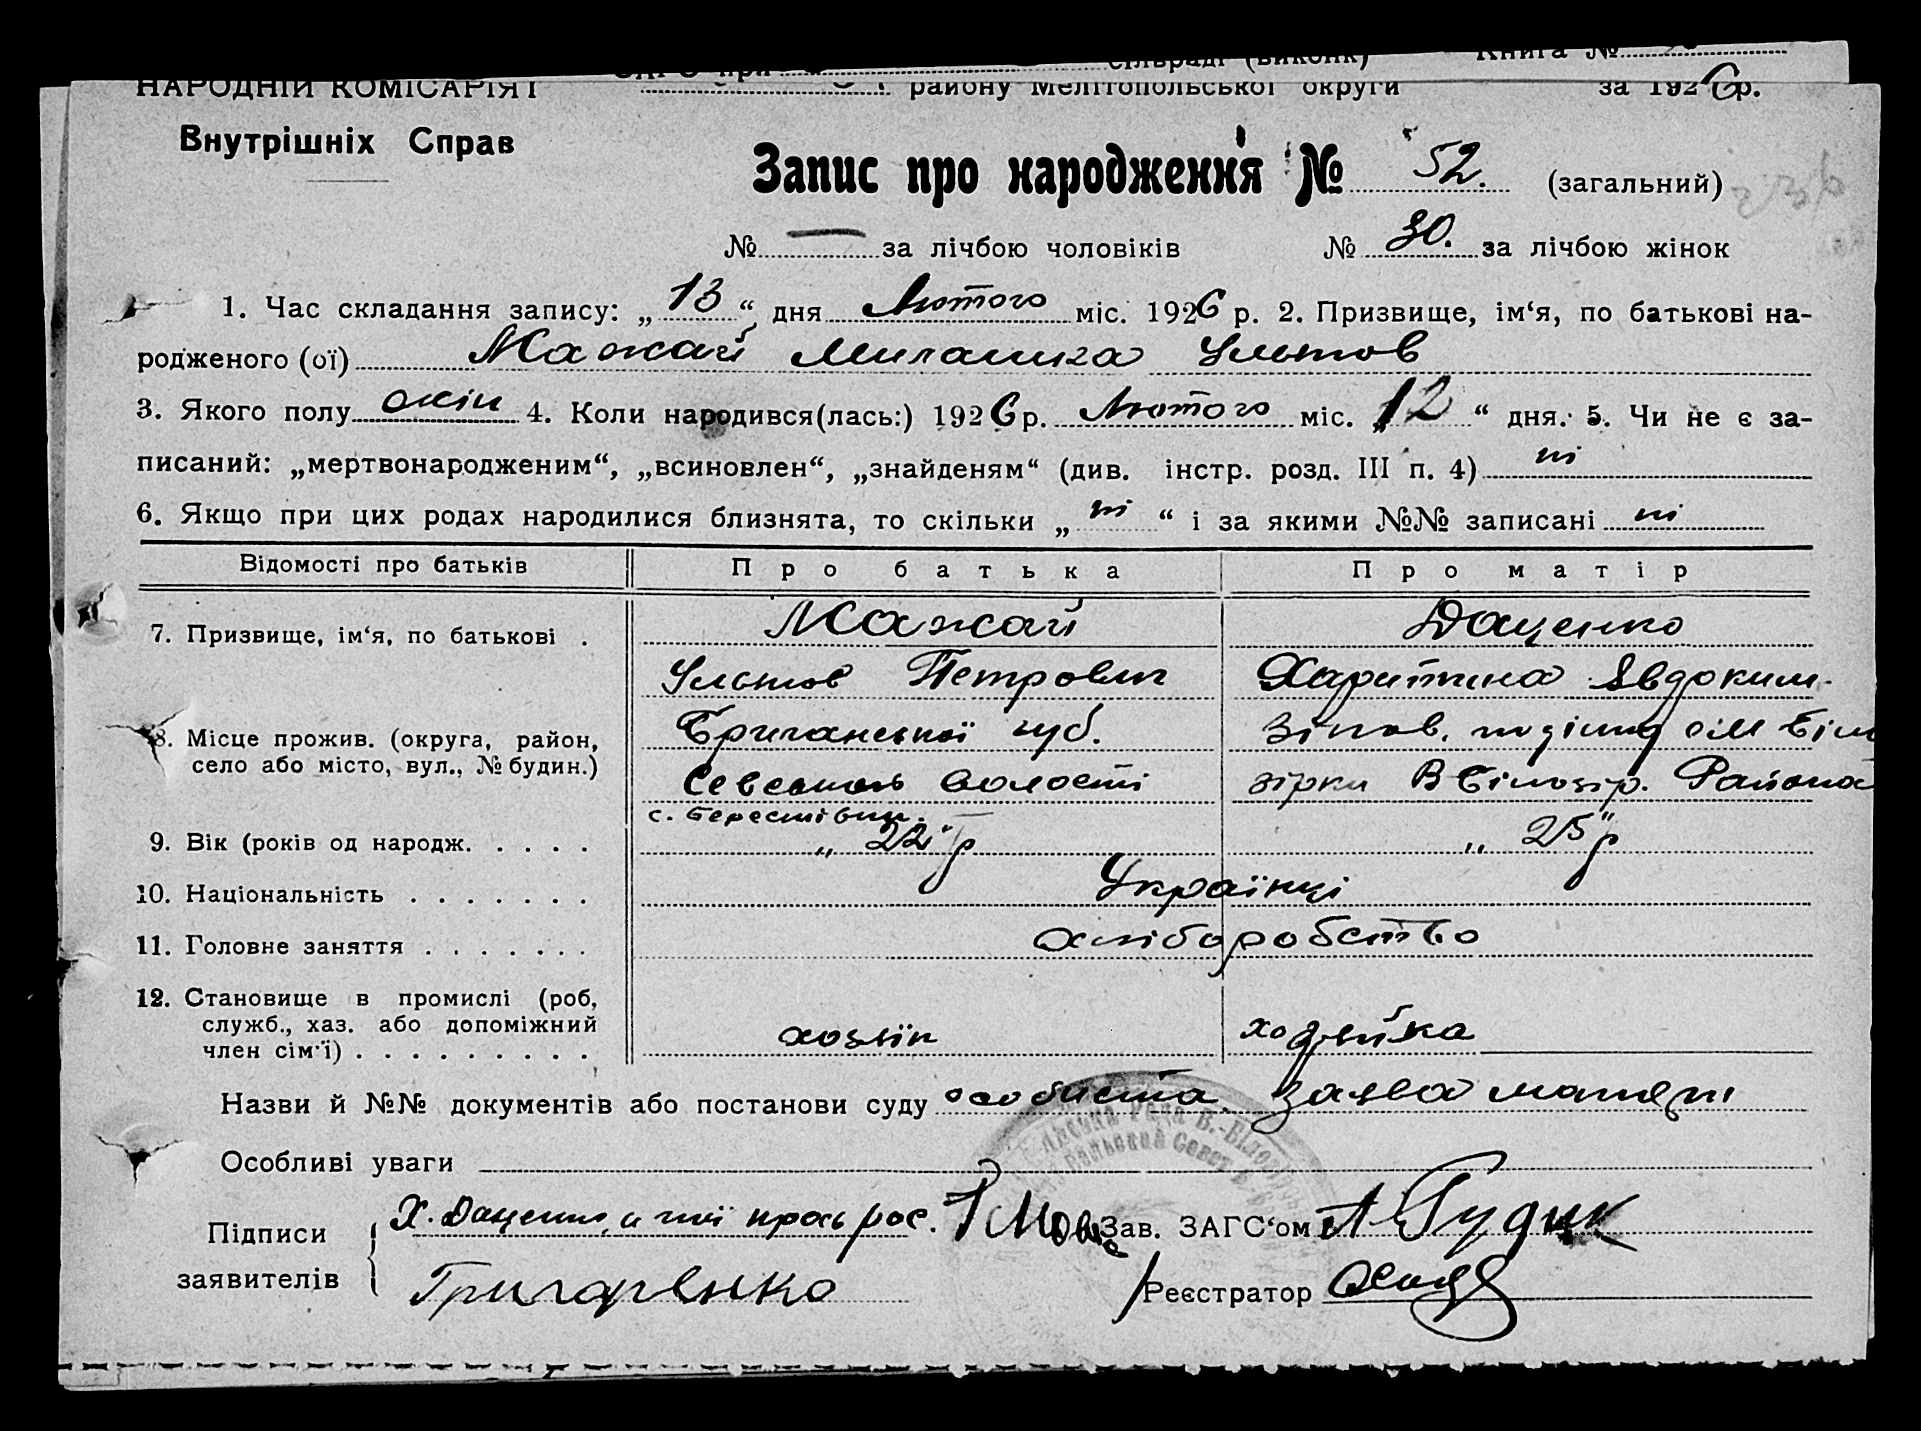 сільраді (виконк) Книга №
НАРОДНІЙ КОМІСАРІЯТ району Мелітопольської округи за 1926 р.
Внутрішніх Справ
Запис про народження № 52. (загальний)
№ — за лічбою чоловіків № 30. за лічбою жінок
1. Час складання запису: „13“ дня Лютого міс. 1926 р. 2. Призвище, ім‘я, по батькові на-
родженого (ої) Мажай
3. Якого полу жін 4. Коли народився(лась:) 1926 р. Лютого міс. „12“ дня. 5. Чи не є за-
писаний: „мертвонародженим“, „всиновлен“, „знайденям“ (див. інстр. розд. III п. 4) ні
6. Якщо при цих родах народилися близнята, то скільки „ні“ і за якими №№ записані ні
Відомості про батьків Про батька Про матір
7. Призвище, ім‘я, по батькові . Мажай Даценко
Петрович Харитина Явдоким.
8. Місце прожив. (округа, район, губ.
село або місто, вул., № будин.) волості зірки В Білозір.
с.
9. Вік (років од народж. . . . . „22“ р „25“ р
10. Національність . . . . . . . Українці
11. Головне заняття . . . . . . . хліборобство
12. Становище в промислі (роб,
служб., хаз. або допоміжний
член сім‘ї) . . . . . . . . . хозяїн хозяйка
Назви й №№ документів або постанови суду особиста заява матері
Особливі уваги
Підписи Х. Даценко, а Зав. ЗАГС‘ом
заявителів Григоренко Реєстратор